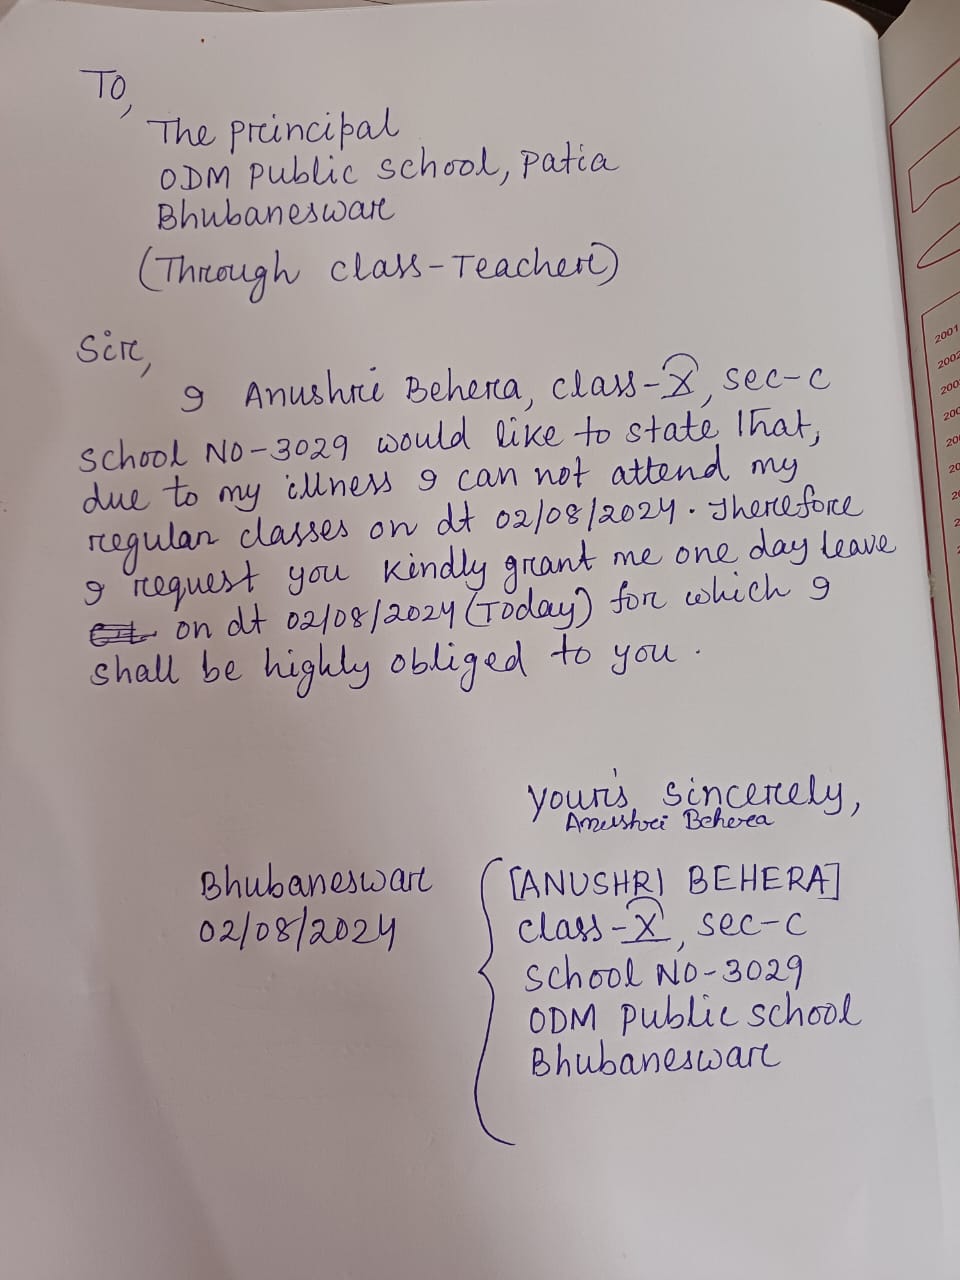 To,
The principal
ODM public school, Patia
Bhubaneswar
(Through class-Teacher)
Sir,
I Anushri Behera, class-X, sec-c
school No-3029 would like to state that,
due to my illness I can not attend my
regular classes on dt 02/08/2024. Therefore
I request you kindly grant me one day leave
on dt 02/08/2024 (Today) for which I
shall be highly obliged to you.
your's sincerely,
Anushri Behera
Bhubaneswar
02/08/2024
[ANUSHRI BEHERA]
class-X, sec-c
school No-3029
ODM public school
Bhubaneswar
2001
2002